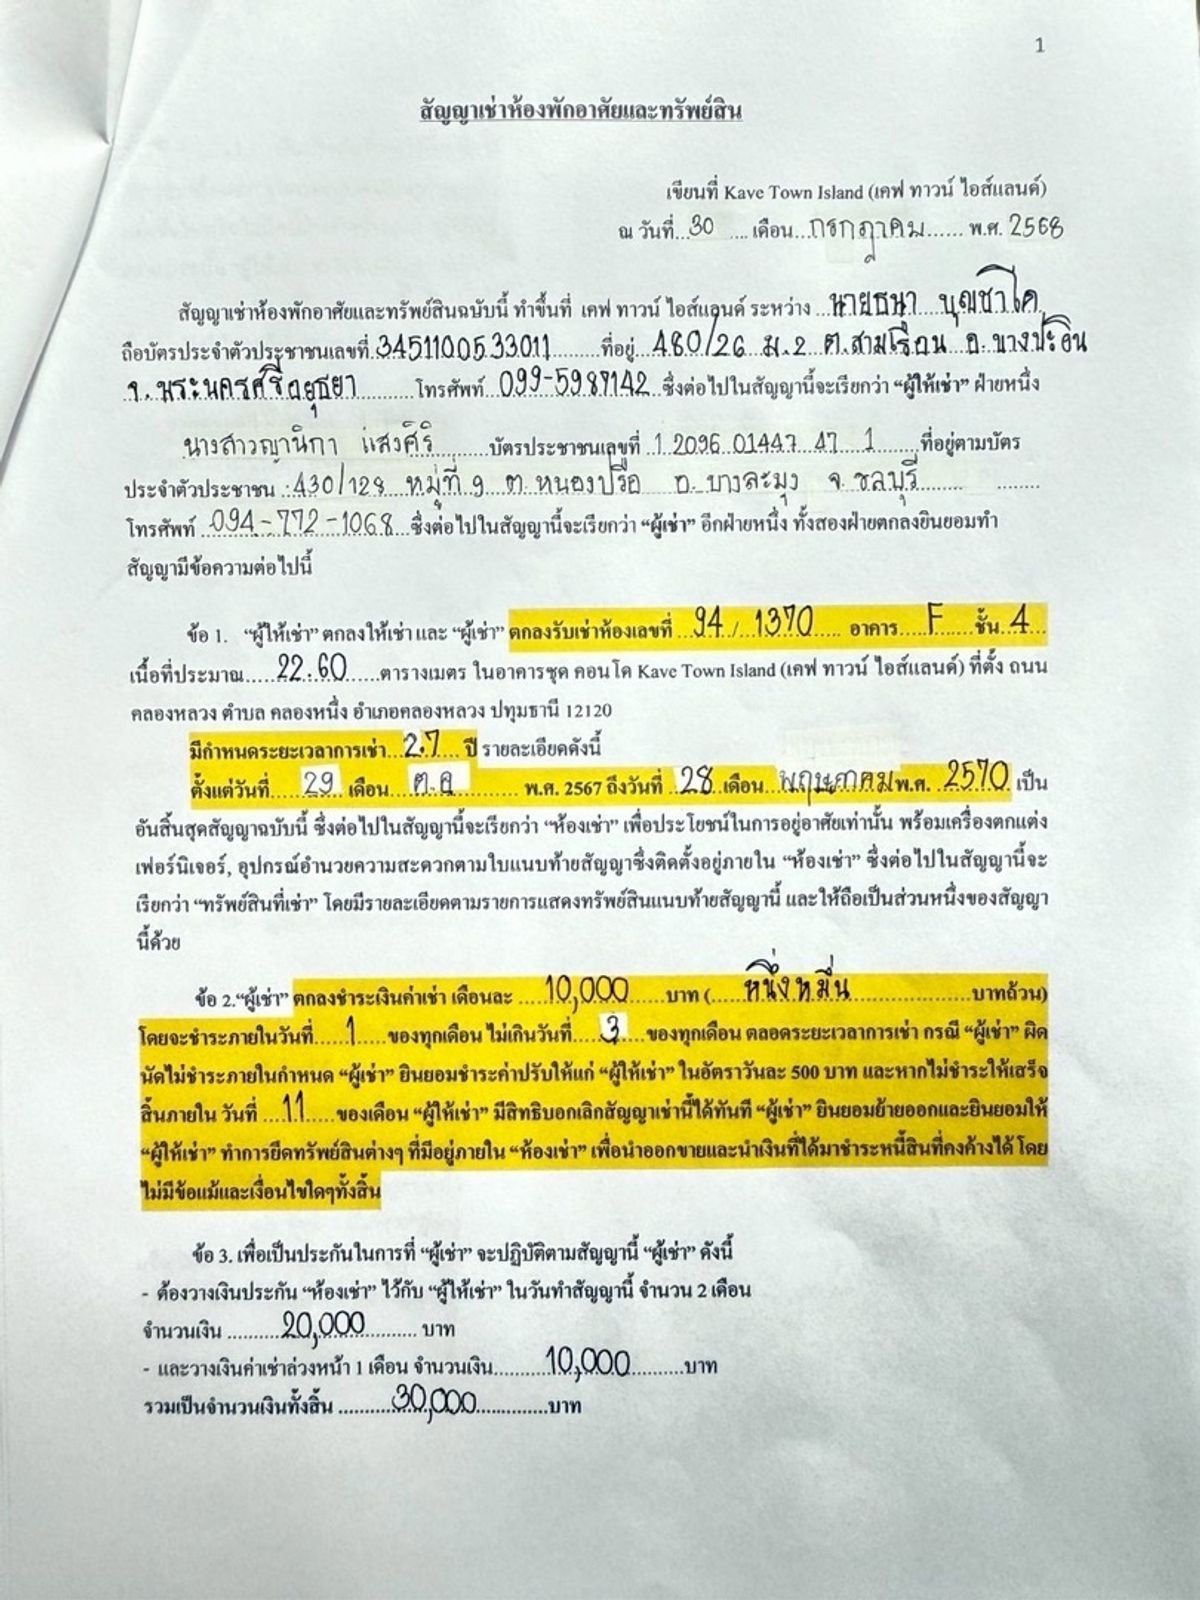 1
สัญญาเช่าห้องพักอาศัยและทรัพย์สิน
เขียนที่ Kave Town Island (เคฟ ทาวน์ ไอส์แลนด์)
ณ วันที่...30 .... เดือน...กรกฎาคม...... พ.ศ. 2568
สัญญาเช่าห้องพักอาศัยและทรัพย์สินฉบับนี้ ทำขึ้นที่ เคฟ ทาวน์ ไอส์แลนด์ ระหว่าง ...นายธนา บุญชาโค
ถือบัตรประจำตัวประชาชนเลขที่ 3451100533011 ......... ที่อยู่ ..480/26 ม.2 ต.สามเรือน อ.บางปะอิน
จ. พระนครศรีอยุธยา ........... โทรศัพท์ .099-5987142 ซึ่งต่อไปในสัญญานี้จะเรียกว่า “ผู้ให้เช่า” ฝ่ายหนึ่ง
นางสาวญานิกา แสงศิริ ......... บัตรประชาชนเลขที่ 1 2096 01447 47 1 ....... ที่อยู่ตามบัตร
ประจำตัวประชาชน : 430/128 หมู่ที่ 9 ต.หนองปรือ อ.บางละมุง จ.ชลบุรี ........ ........
โทรศัพท์ .094-772-1068...ซึ่งต่อไปในสัญญานี้จะเรียกว่า “ผู้เช่า” อีกฝ่ายหนึ่ง ทั้งสองฝ่ายตกลงยินยอมทำ
สัญญามีข้อความต่อไปนี้
ข้อ 1. “ผู้ให้เช่า” ตกลงให้เช่า และ “ผู้เช่า” ตกลงรับเช่าห้องเลขที่ ...94 / 1370 ..... อาคาร.....F....... ชั้น 4...
เนื้อที่ประมาณ.....22.60......ตารางเมตร ในอาคารชุด คอนโด Kave Town Island (เคฟ ทาวน์ ไอส์แลนด์) ที่ตั้ง ถนน
คลองหลวง ตำบล คลองหนึ่ง อำเภอคลองหลวง ปทุมธานี 12120
มีกำหนดระยะเวลาการเช่า...2.7.... ปี รายละเอียดดังนี้
ตั้งแต่วันที่ ......29 เดือน ...ต.ค............ พ.ศ. 2567 ถึงวันที่ ..28 เดือน...พฤษภาคม พ.ศ. 2570 เป็น
อันสิ้นสุดสัญญาฉบับนี้ ซึ่งต่อไปในสัญญานี้จะเรียกว่า “ห้องเช่า” เพื่อประโยชน์ในการอยู่อาศัยเท่านั้น พร้อมเครื่องตกแต่ง
เฟอร์นิเจอร์, อุปกรณ์อำนวยความสะดวกตามใบแนบท้ายสัญญาซึ่งติดตั้งอยู่ภายใน “ห้องเช่า” ซึ่งต่อไปในสัญญานี้จะ
เรียกว่า “ทรัพย์สินที่เช่า” โดยมีรายละเอียดตามรายการแสดงทรัพย์สินแนบท้ายสัญญานี้ และให้ถือเป็นส่วนหนึ่งของสัญญา
นี้ด้วย
ข้อ 2.“ผู้เช่า” ตกลงชำระเงินค่าเช่า เดือนละ ....10,000......บาท (.....หนึ่งหมื่น....................บาทถ้วน)
โดยจะชำระภายในวันที่......1..... ของทุกเดือน ไม่เกินวันที่.....3......ของทุกเดือน ตลอดระยะเวลาการเช่า กรณี “ผู้เช่า” ผิด
นัดไม่ชำระภายในกำหนด “ผู้เช่า” ยินยอมชำระค่าปรับให้แก่ “ผู้ให้เช่า” ในอัตราวันละ 500 บาท และหากไม่ชำระให้เสร็จ
สิ้นภายใน วันที่ ....11...... ของเดือน “ผู้ให้เช่า” มีสิทธิบอกเลิกสัญญาเช่านี้ได้ทันที “ผู้เช่า” ยินยอมย้ายออกและยินยอมให้
“ผู้ให้เช่า” ทำการยึดทรัพย์สินต่างๆ ที่มีอยู่ภายใน “ห้องเช่า” เพื่อนำออกขายและนำเงินที่ได้มาชำระหนี้สินที่คงค้างได้ โดย
ไม่มีข้อแม้และเงื่อนไขใดๆทั้งสิ้น
ข้อ 3. เพื่อเป็นประกันในการที่ “ผู้เช่า” จะปฏิบัติตามสัญญานี้ “ผู้เช่า” ดังนี้
- ต้องวางเงินประกัน “ห้องเช่า” ไว้กับ “ผู้ให้เช่า” ในวันทำสัญญานี้ จำนวน 2 เดือน
จำนวนเงิน ..........20,000.......... บาท
- และวางเงินค่าเช่าล่วงหน้า 1 เดือน จำนวนเงิน.........10,000..........บาท
รวมเป็นจำนวนเงินทั้งสิ้น ..........30,000..............บาท